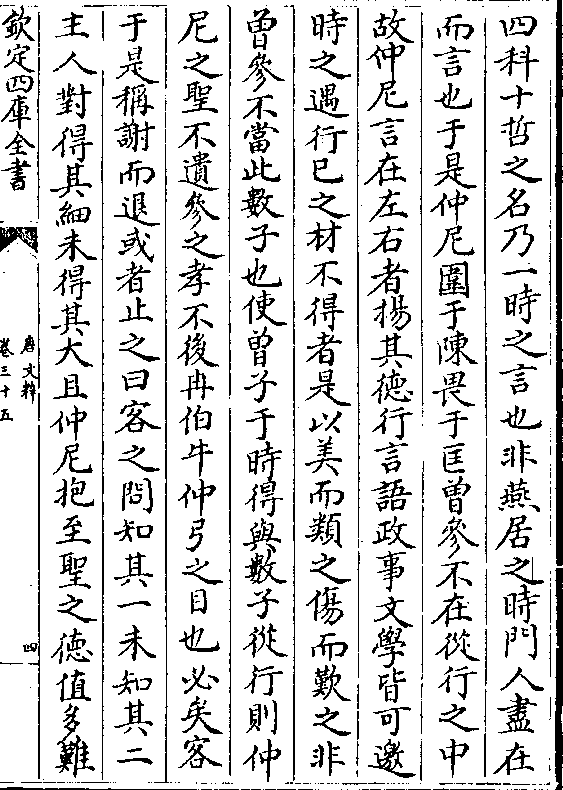 四科十哲之名乃一時之言也非燕居之時門人盡在
而言也于是仲尼圍于陳畏于匡曾參不在從行之中
故仲尼言在左右者揚其德行言語政事文學皆可邀
時之遇行已之材不得者是以美而類之傷而歎之非
曾參不當此數子也使曾子于時得與數子從行則仲
尼之聖不遺參之孝不後冉伯牛仲弓之目也必矣客
于是稱謝而退或者止之曰客之問知其一未知其二
主人對得其細未得其大且仲尼抱至聖之德值多難
欽定四庫全書
唐文粹
卷三十五
四